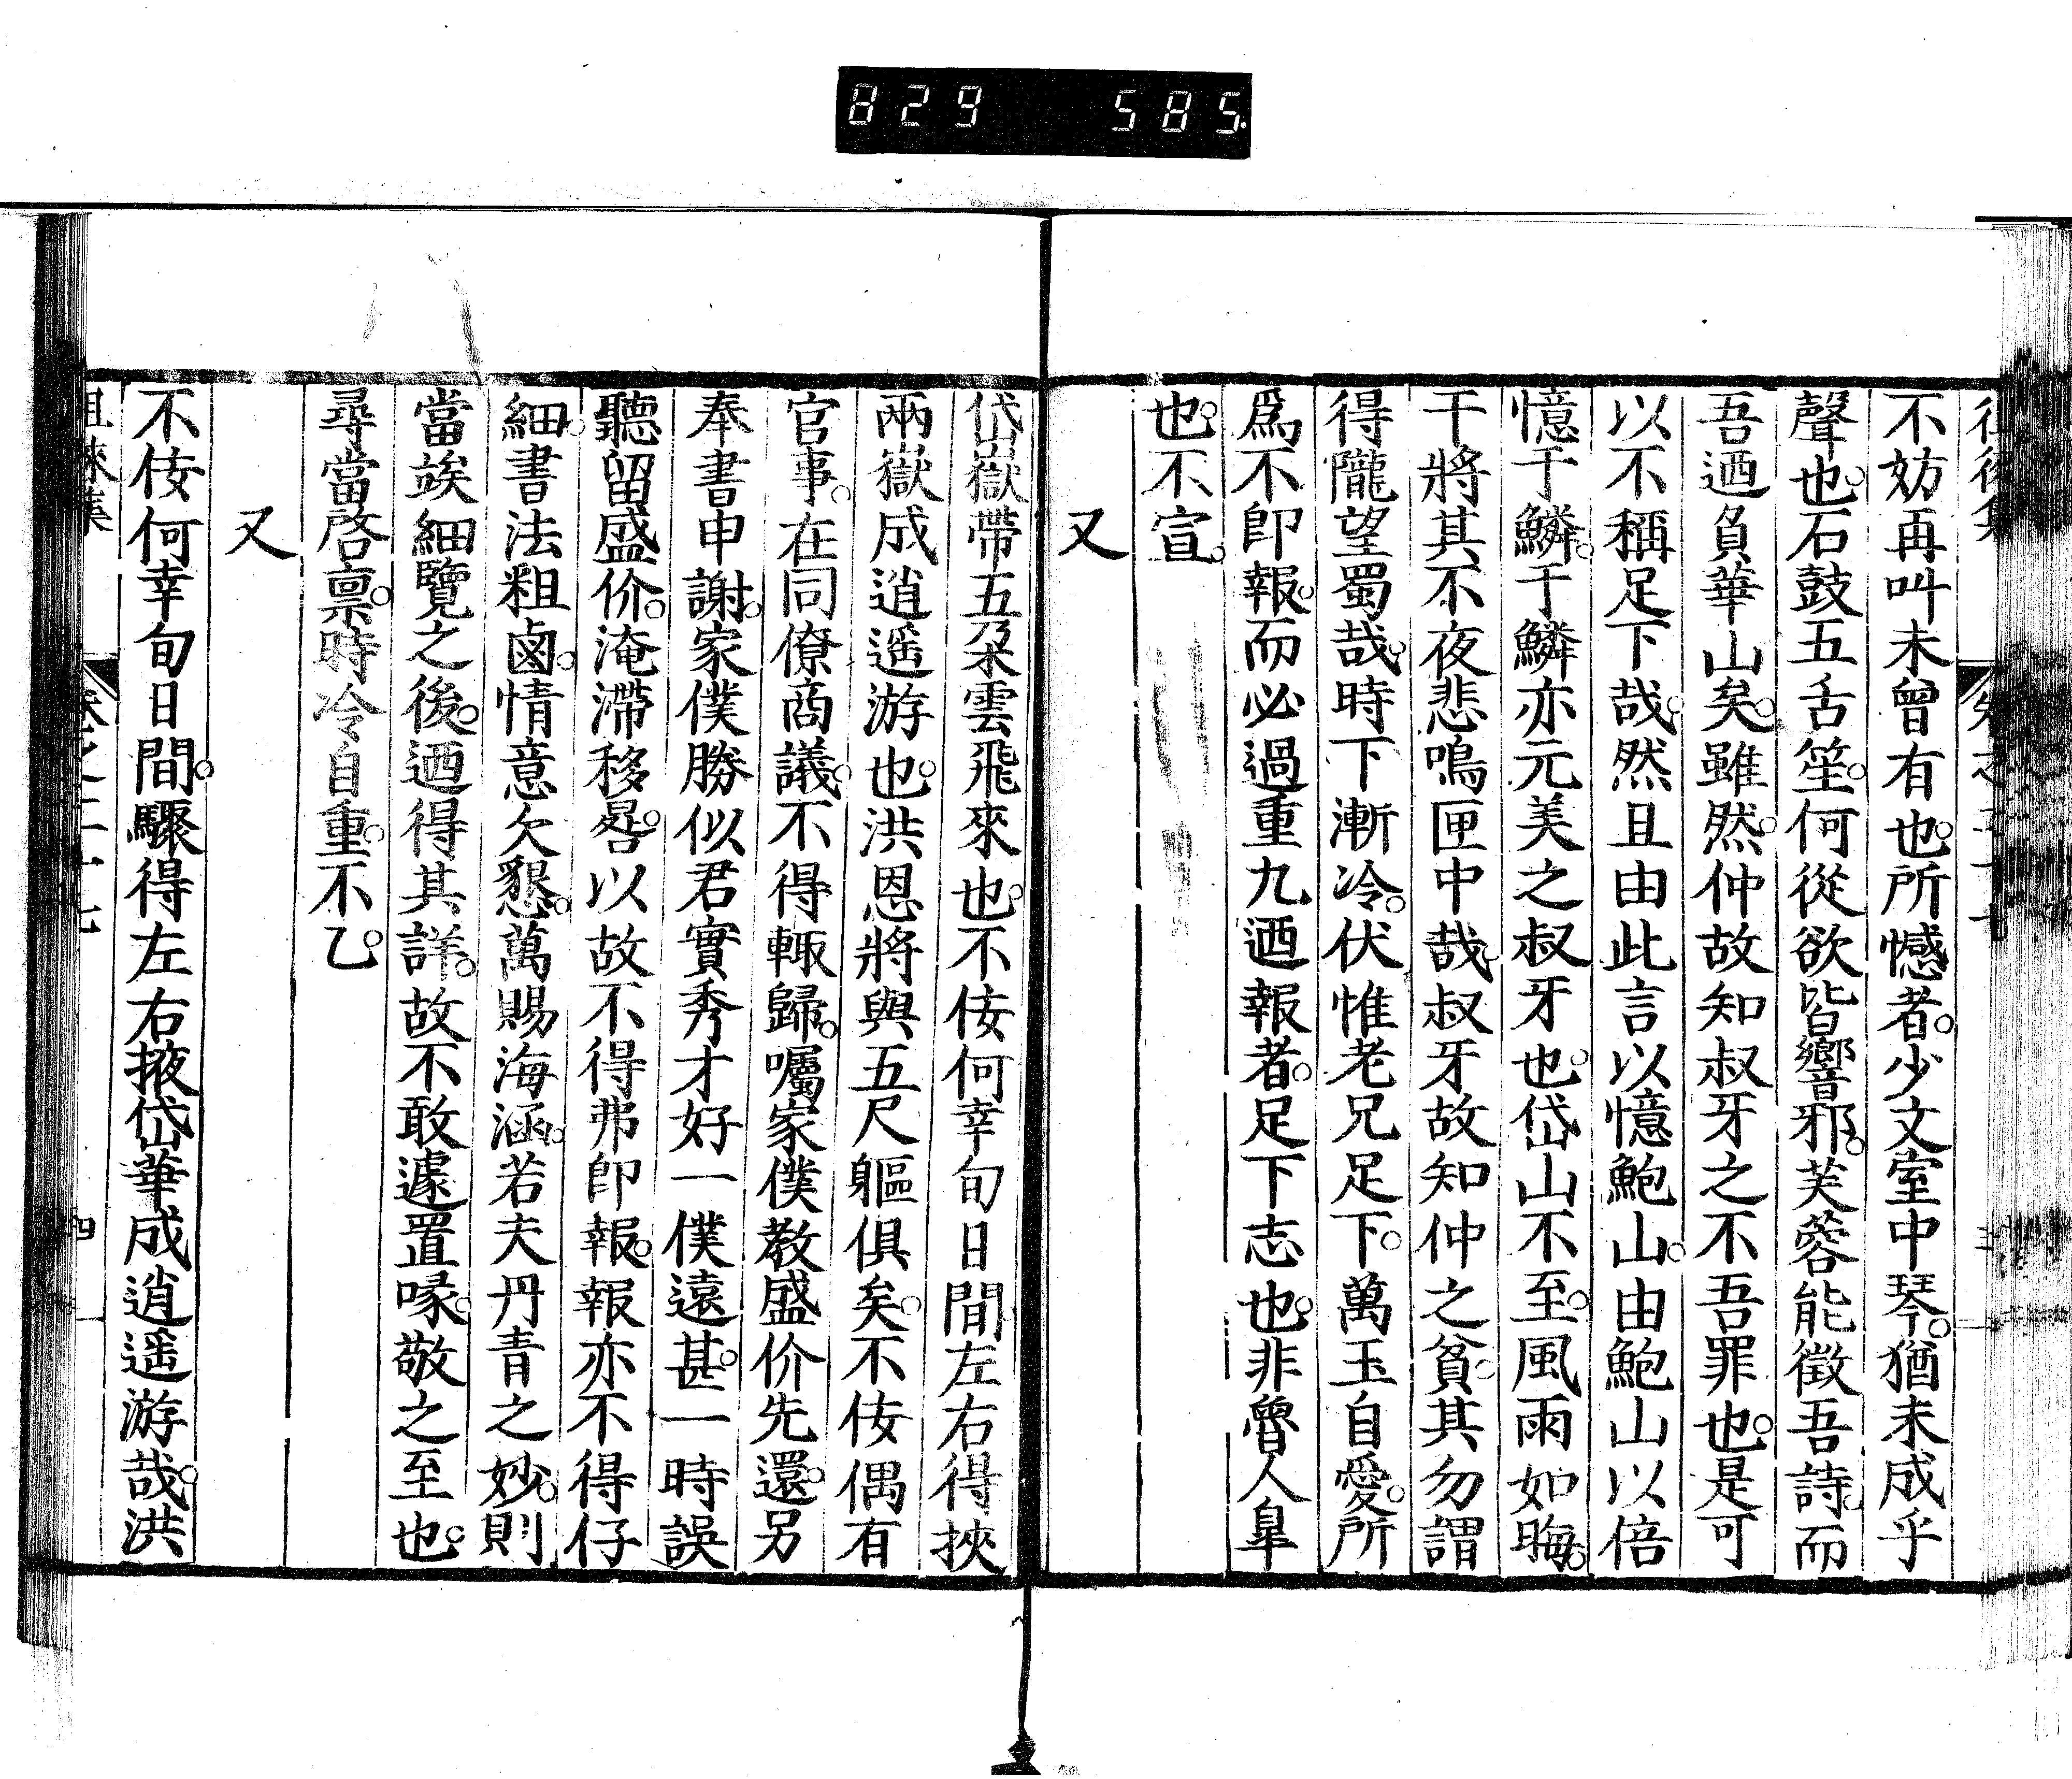 829 585
不妨再叫未曾有也。所憾者。少文室中琴。猶未成乎
聲也。石鼓五舌笙。何從欲皆響邪。芙蓉能徵吾詩。而
吾迺負華山矣。雖然。仲故知叔牙之不吾罪也。是可
以不稱足下哉。然且由此言以憶鮑山。由鮑山以倍
憶于鱗。于鱗亦元美之叔牙也。岱山不至。風雨如晦。
干將其不夜悲鳴匣中哉。叔牙故知仲之貧。其勿謂
得隴望蜀哉。時下漸冷。伏惟老兄足下。萬玉自愛。所
爲不卽報。而必過重九迺報者。足下志也。非魯人皐
也。不宣。
又
岱嶽帶五朶雲飛來也。不佞何幸旬日間左右得挾
兩嶽成逍遥游也。洪恩將與五尺軀俱矣。不佞偶有
官事。在同僚商議。不得輙歸。囑家僕敎盛价先還。另
奉書申謝。家僕勝似君實秀才好一僕遠甚。一時誤
聽留盛价。淹滯移晷。以故不得弗卽報。報亦不得仔
細。書法粗鹵。情意欠懇。萬賜海涵。若夫丹青之妙。則
當竢細覽之後。迺得其詳。故不敢遽置喙。敬之至也。
尋當啓禀。時冷自重。不乙。
又
不佞何幸旬日間。驟得左右掖岱華成逍遥游哉。洪